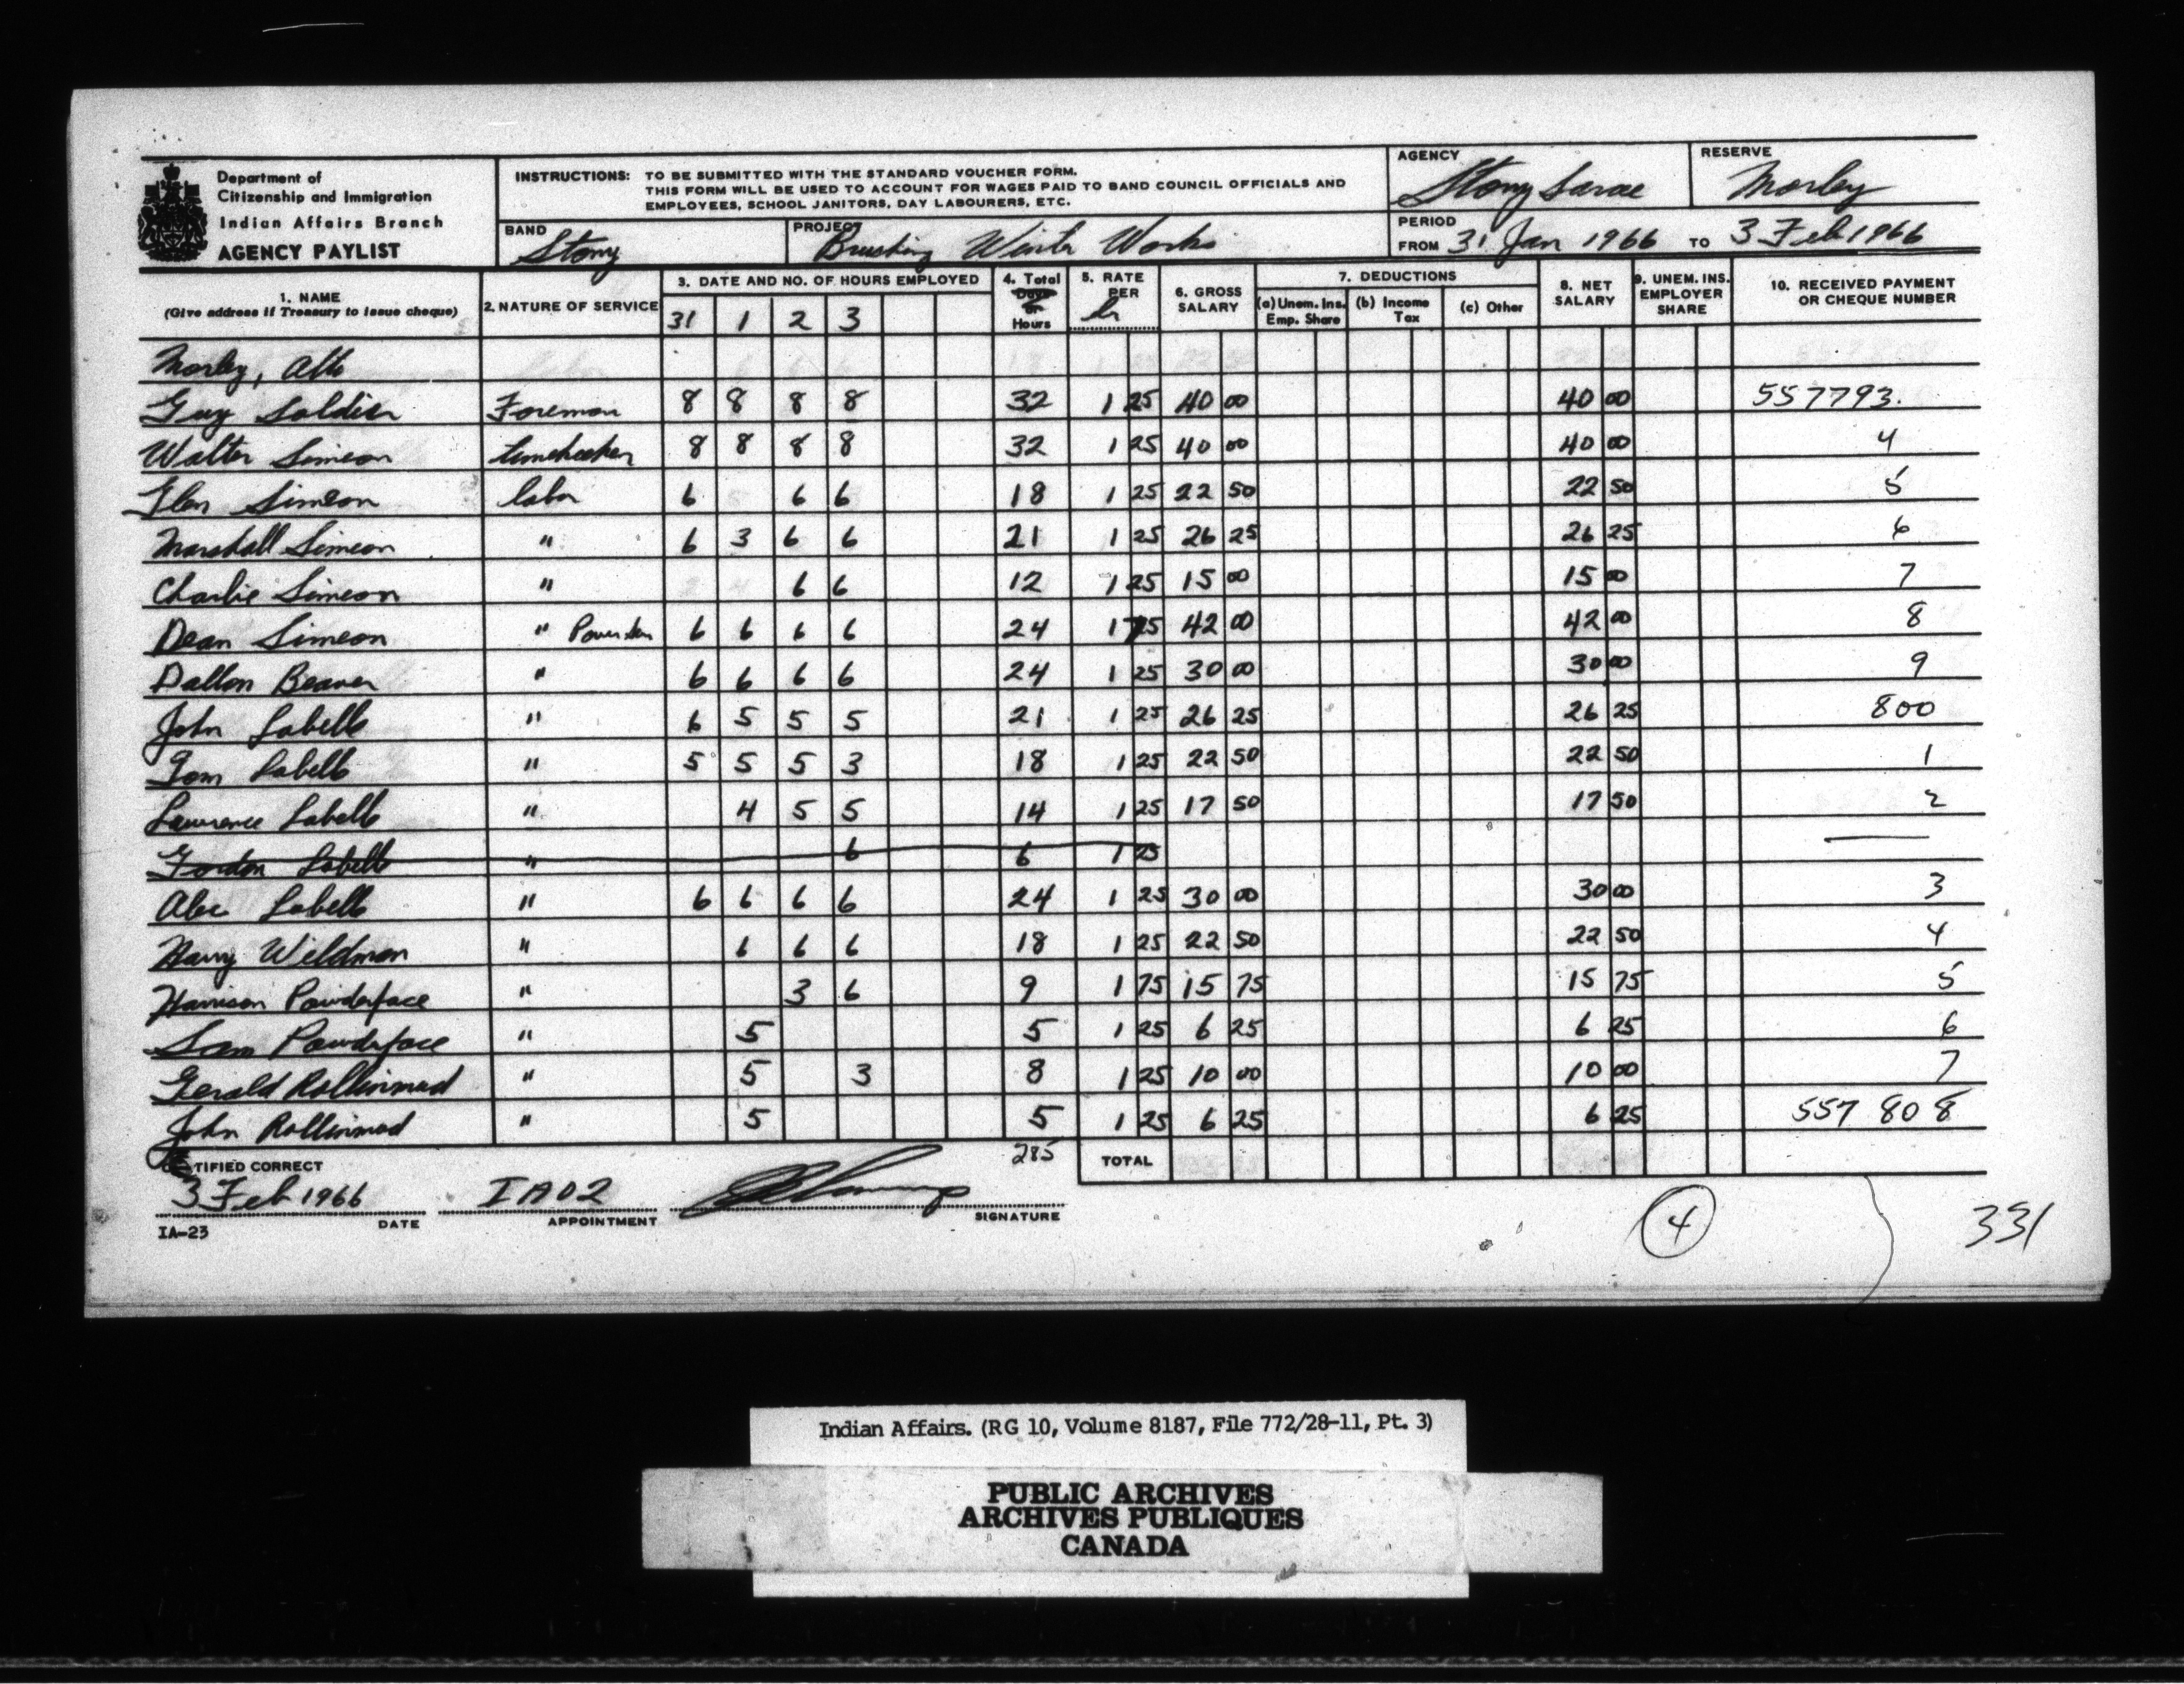 Department of
Citizenship and Immigration
Indian Affairs Branch
AGENCY PAYLIST
INSTRUCTIONS: TO BE SUBMITTED WITH THE STANDARD VOUCHER FORM.
THIS FORM WILL BE USED TO ACCOUNT FOR WAGES PAID TO BAND COUNCIL OFFICIALS AND
EMPLOYEES, SCHOOL JANITORS, DAY LABOURERS, ETC.
AGENCY Stony Sarcee
RESERVE Morley
BAND Stony
PROJECT Brushing Winter Works
PERIOD
FROM 31 Jan 1966 TO 3 Feb 1966
1. NAME
(Give address if Treasury to issue cheque)
2. NATURE OF SERVICE
3. DATE AND NO. OF HOURS EMPLOYED
31 1 2 3
4. Total Days or Hours
5. RATE PER hr
6. GROSS SALARY
7. DEDUCTIONS
(a) Unem. Ins. Emp. Share
(b) Income Tax
(c) Other
8. NET SALARY
9. UNEM. INS. EMPLOYER SHARE
10. RECEIVED PAYMENT OR CHEQUE NUMBER
Morley, Alta
Guy Soldier Foreman 8 8 8 8 32 1 25 40 00 40 00 557793.
Walter Simeon timekeeper 8 8 8 8 32 1 25 40 00 40 00 4
Glen Simeon labor 6 6 6 18 1 25 22 50 22 50 5
Marshall Simeon " 6 3 6 6 21 1 25 26 25 26 25 6
Charlie Simeon " 6 6 12 1 25 15 00 15 00 7
Dean Simeon " 6 6 6 6 24 1 75 42 00 42 00 8
Dallon Beaver " 6 6 6 6 24 1 25 30 00 30 00 9
John Labelle " 6 5 5 5 21 1 25 26 25 26 25 800
Tom Labelle " 5 5 5 3 18 1 25 22 50 22 50 1
Lawrence Labelle " 4 5 5 14 1 25 17 50 17 50 2
Gordon Labelle " 6 6 1 25
Alec Labelle " 6 6 6 6 24 1 25 30 00 30 00 3
Harry Wildman " 6 6 6 18 1 25 22 50 22 50 4
Harrison Powderface " 3 6 9 1 75 15 75 15 75 5
Sam Powderface " 5 5 1 25 6 25 6 25 6
Gerald Rollinmud " 5 3 8 1 25 10 00 10 00 7
John Rollinmud " 5 5 1 25 6 25 6 25 557 808
285 TOTAL
CERTIFIED CORRECT
3 Feb 1966 IA02
DATE APPOINTMENT SIGNATURE
IA-23
4
331
Indian Affairs. (RG 10, Volume 8187, File 772/28-11, Pt. 3)
PUBLIC ARCHIVES
ARCHIVES PUBLIQUES
CANADA